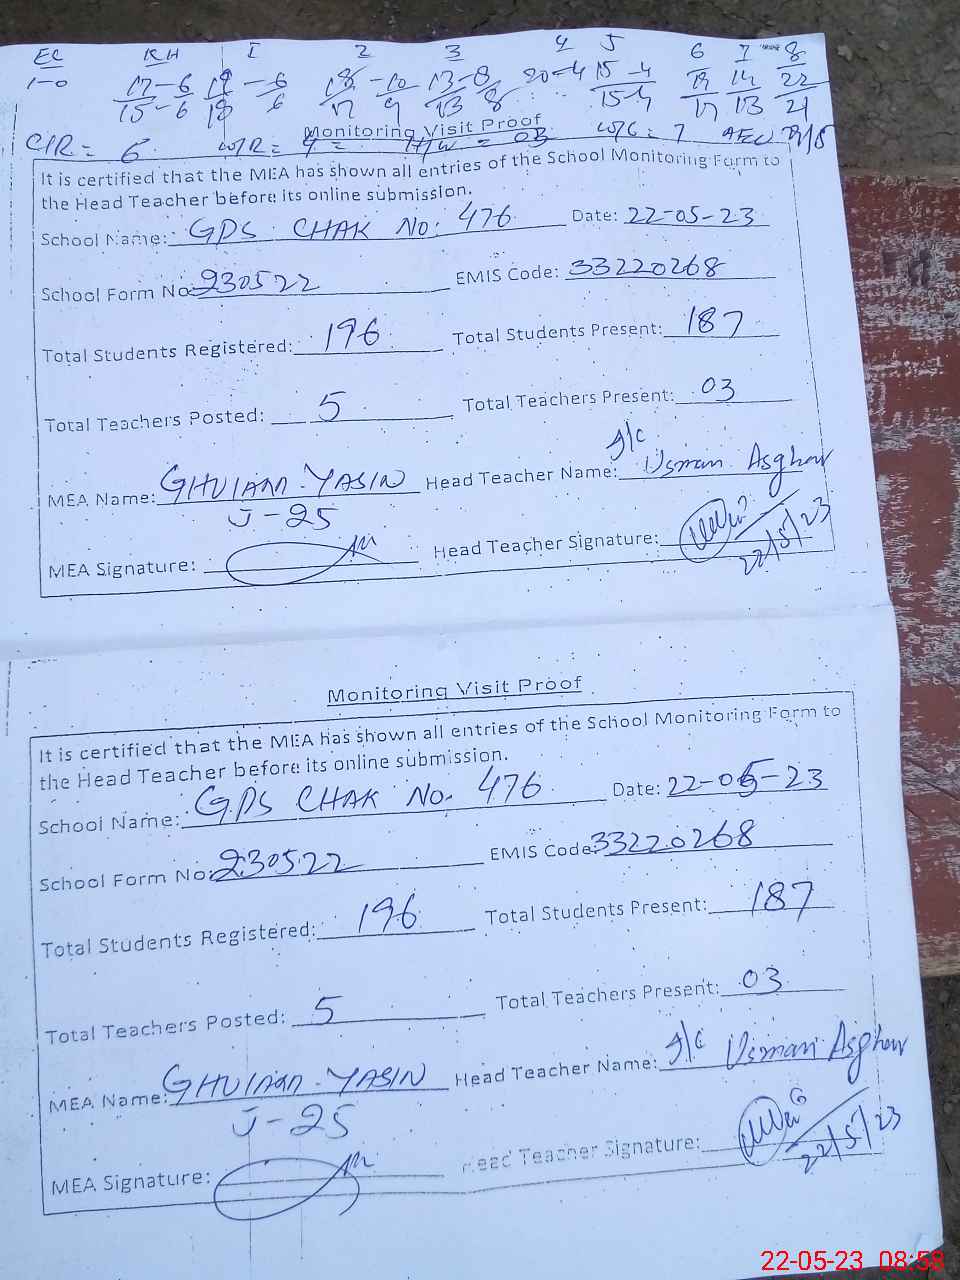 EC KH I 2 3 4 5 6 7 8
1-0 17-6 18 -6 18 -10 13-8 20-4 15-4 19 14 22
15-6 18 6 17 9 13 8 15-4 17 13 21
Monitoring Visit Proof
CIR = 6 W/R = 4 = H/W = 03 W/C = 7
It is certified that the MEA has shown all entries of the School Monitoring Form to
the Head Teacher before its online submission.
School Name: GPS CHAK No: 476 Date: 22-05-23
School Form No: 230522 EMIS Code: 33220268
Total Students Registered: 196 Total Students Present: 187
Total Teachers Posted: 5 Total Teachers Present: 03
I/C
MEA Name: GHULAM YASIN Head Teacher Name: Usman Asghar
J-25
MEA Signature: Head Teacher Signature:
22/5/23
Monitoring Visit Proof
It is certified that the MEA has shown all entries of the School Monitoring Form to
the Head Teacher before its online submission.
School Name: GPS CHAK No. 476 Date: 22-05-23
School Form No: 230522 EMIS Code: 33220268
Total Students Registered: 196 Total Students Present: 187
Total Teachers Posted: 5 Total Teachers Present: 03
MEA Name: GHULAM YASIN Head Teacher Name: I/C Usman Asghar
J-25
MEA Signature: Head Teacher Signature:
22/5/23
22-05-23 08:58